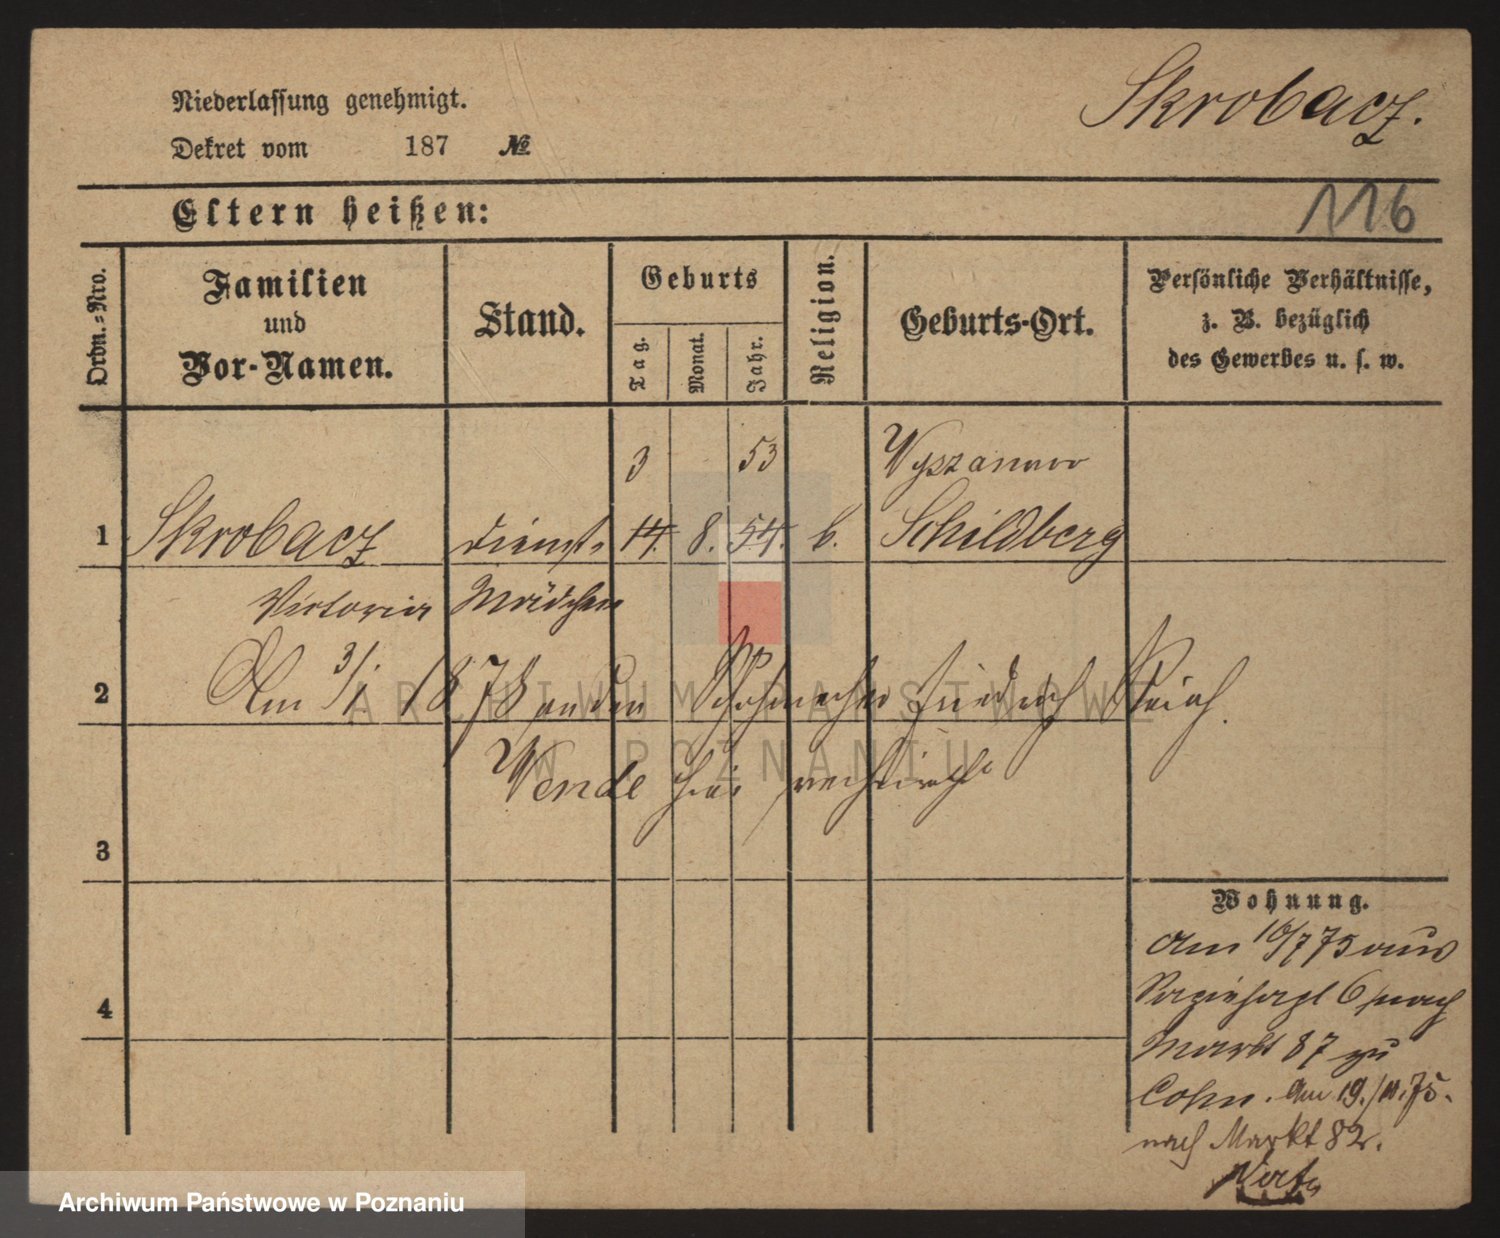 Niederlassung genehmigt.
Skrobacz.
Dekret vom 187 №
Eltern heißen:
116
Ordn.-Nro.
Familien
und
Vor-Namen.
Stand.
Geburts
Tag.
Monat.
Jahr.
Religion.
Geburts-Ort.
Persönliche Verhältnisse,
z. B. bezüglich
des Gewerbes u. s. w.
3 53 Wyszanow
1 Skrobacz Dienst- 14. 8. 54. k. Schildberg
Victoria Mädchen
2 Am 3/1 1878 an den Schuhmacher Friedrich
Wende hier verheirath
3
Wohnung.
Am 16/7 75 aus
6 nach
4
Markt 87 zu
Cohn. Am 19./11.75.
nach Markt 82.
ARCHIWUM PAŃSTWOWE
W POZNANIU
Archiwum Państwowe w Poznaniu